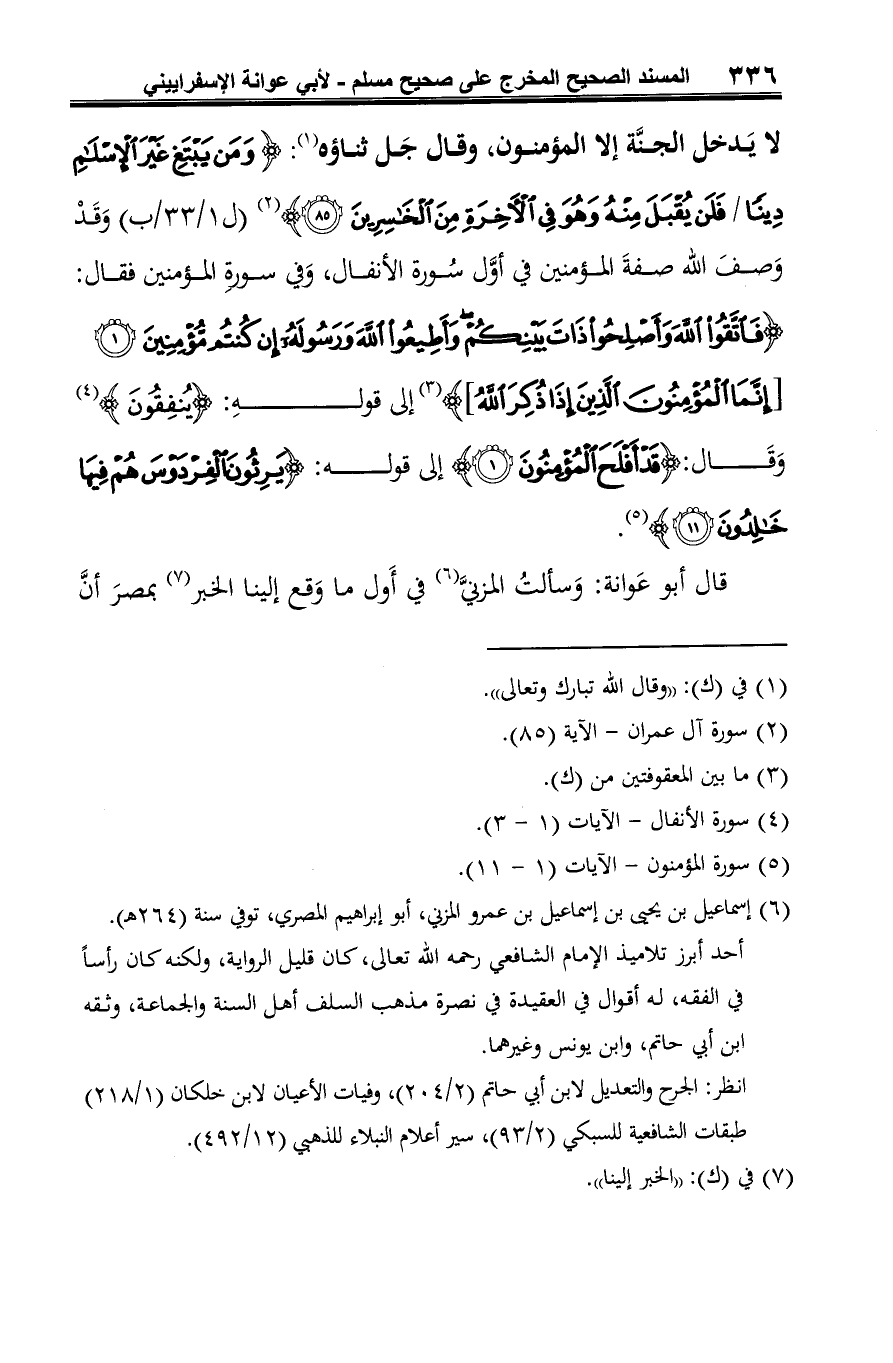 ٣٣٦ المسند الصحيح المخرج على صحيح مسلم - لأبي عوانة الإسفراييني
لا يَدخل الجنَّة إلا المؤمنون، وقال جَل ثناؤه(١): ﴿وَمَن يَبْتَغِ غَيْرَ ٱلْإِسْلَٰمِ
دِينًا / فَلَن يُقْبَلَ مِنْهُ وَهُوَ فِى ٱلْأَخِرَةِ مِنَ ٱلْخَٰسِرِينَ ٨٥﴾(٢) (ل١/٣٣/ب) وَقَدْ
وَصفَ الله صفةَ المؤمنين في أوَّل سُورة الأنفال، وَفي سورةِ المؤمنين فقال:
﴿فَٱتَّقُوا۟ ٱللَّهَ وَأَصْلِحُوا۟ ذَاتَ بَيْنِكُمْ ۖ وَأَطِيعُوا۟ ٱللَّهَ وَرَسُولَهُۥٓ إِن كُنتُم مُّؤْمِنِينَ ١
[إِنَّمَا ٱلْمُؤْمِنُونَ ٱلَّذِينَ إِذَا ذُكِرَ ٱللَّهُ]﴾(٣) إلى قولـهِ: ﴿يُنفِقُونَ﴾(٤)
وَقَـال: ﴿قَدْ أَفْلَحَ ٱلْمُؤْمِنُونَ ١﴾ إلى قولـه: ﴿يَرِثُونَ ٱلْفِرْدَوْسَ هُمْ فِيهَا
خَٰلِدُونَ ١١﴾(٥).
قال أبو عَوانة: وَسألتُ المزنيَّ(٦) في أَول ما وَقع إلينا الخبر(٧) بمصرَ أنَّ
(١) في (ك): ((وقال الله تبارك وتعالى)).
(٢) سورة آل عمران - الآية (٨٥).
(٣) ما بين المعقوفتين من (ك).
(٤) سورة الأنفال - الآيات (١ - ٣).
(٥) سورة المؤمنون - الآيات (١ - ١١).
(٦) إسماعيل بن يحيى بن إسماعيل بن عمرو المزني، أبو إبراهيم المصري، توفي سنة (٢٦٤هـ).
أحد أبرز تلاميذ الإمام الشافعي رحمه الله تعالى، كان قليل الرواية، ولكنه كان رأساً
في الفقه، له أقوال في العقيدة في نصرة مذهب السلف أهل السنة والجماعة، وثقه
ابن أبي حاتم، وابن يونس وغيرهما.
انظر: الجرح والتعديل لابن أبي حاتم (٢٠٤/٢)، وفيات الأعيان لابن خلكان (٢١٨/١)
طبقات الشافعية للسبكي (٩٣/٢)، سير أعلام النبلاء للذهبي (٤٩٢/١٢).
(٧) في (ك): ((الخبر إلينا)).